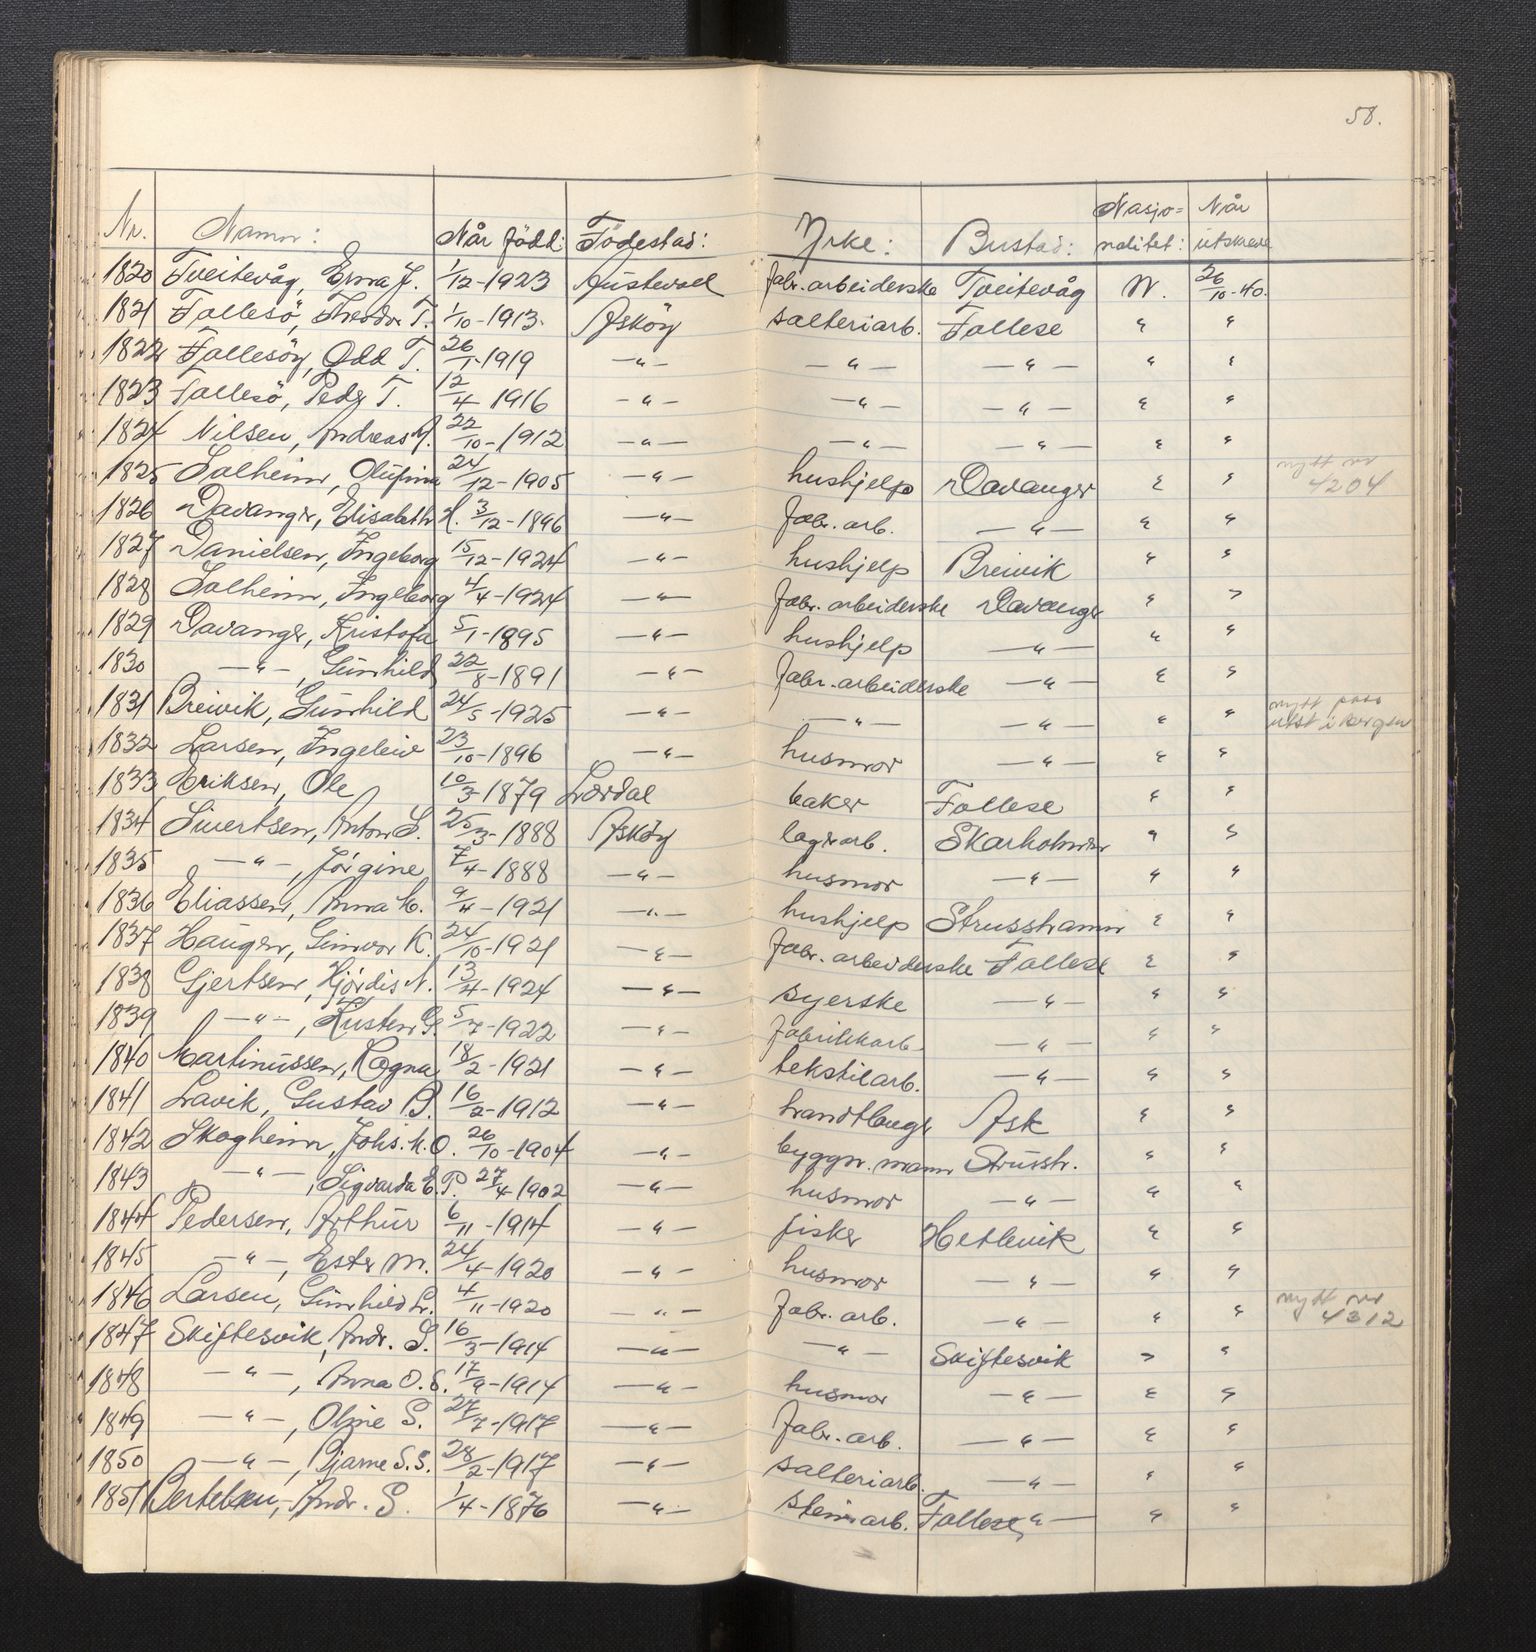 58.
Nr. Namn: Når född: Födestad: Yrke: Bustad: Nasjo= nalitet: Når utskreve
1820 Tveitevåg, Erna J. 1/12-1923 Austevoll fabr.arbeiderske Tveitevåg N. 26/10-40.
1821 Follesö, Theodor T. 1/10-1913. Asköy salteriarb. Follese " "
1822 Follesöy, Odd T. 26/1-1919 -"- -"- -"- " "
1823 Follesö, Peder T. 12/4-1916 -"- -"- -"- " "
1824 Nilsen, Andreas M. 22/10-1912 -"- -"- -"- " "
1825 Solheim, Olufina 24/12-1905 -"- hushjelp Davanger " " nytt nr 4204
1826 Davanger, Elisabeth H. 3/12-1896 -"- fabr. arb. -"- " "
1827 Danielsen, Ingeborg 15/12-1924 -"- hushjelp Breivik " "
1828 Solheim, Ingeborg 4/4-1924 -"- fabr. arbeiderske Davanger " "
1829 Davanger, Kristofa 5/1-1895 -"- hushjelp -"- " "
1830 -"-, Gunhild 22/8-1891 -"- fabr.arbeiderske -"- " "
1831 Breivik, Gunhild 24/5-1925 -"- -"- -"- " " nytt pass utst i bergen
1832 Larsen, Ingeleiv 23/10-1896 -"- husmor -"- " "
1833 Eriksen, Ole 10/3-1879 Lærdal baker Follese " "
1834 Sivertsen, Anton S. 25/3-1888 Asköy lagerarb. Skarholmen " "
1835 -"-, Jörgine 7/4-1888 -"- husmor -"- " "
1836 Eliassen, Anna M. 9/4-1921 -"- hushjelp Strusshamn " "
1837 Haugen, Gunvor K. 24/10-1921 -"- fabr. arbeiderske Follese " "
1838 Gjertsen, Hjördis N. 13/4-1924 -"- syerske -"- " "
1839 -"-, Kirsten G. 5/7-1922 -"- fabrikkarb. -"- " "
1840 Martinussen, Ragna 18/2-1921 -"- tekstilarb. -"- " "
1841 Lavik, Gustav B. 16/2-1912 -"- handtlanger Ask " "
1842 Skogheim, Johs. M.O. 26/10-1904 -"- byggn. mann Strussh. " "
1843 -"-, Sigvarda E.P. 27/4-1902 -"- husmor -"- " "
1844 Pedersen, Arthur 6/11-1914 -"- fisker Hetlevik " "
1845 -"-, Ester M. 24/4-1920 -"- husmor -"- " "
1846 Larsen, Gunhild L. 4/11-1920 -"- fabr. arb. -"- " " nytt nr 4312
1847 Skiftesvik, Andr. S. 16/3-1914 -"- -"- Skiftesvik " "
1848 -"-, Anna O.S. 17/9-1914 -"- husmor -"- " "
1849 -"-, Oline S. 27/7-1917 -"- fabr. arb. -"- " "
1850 -"-, Bjarne S.S. 28/2-1917 -"- salteriarb. -"- " "
1851 Bertelsen, Andr. S. 1/4-1876 -"- steinarb. Follese -"- " "